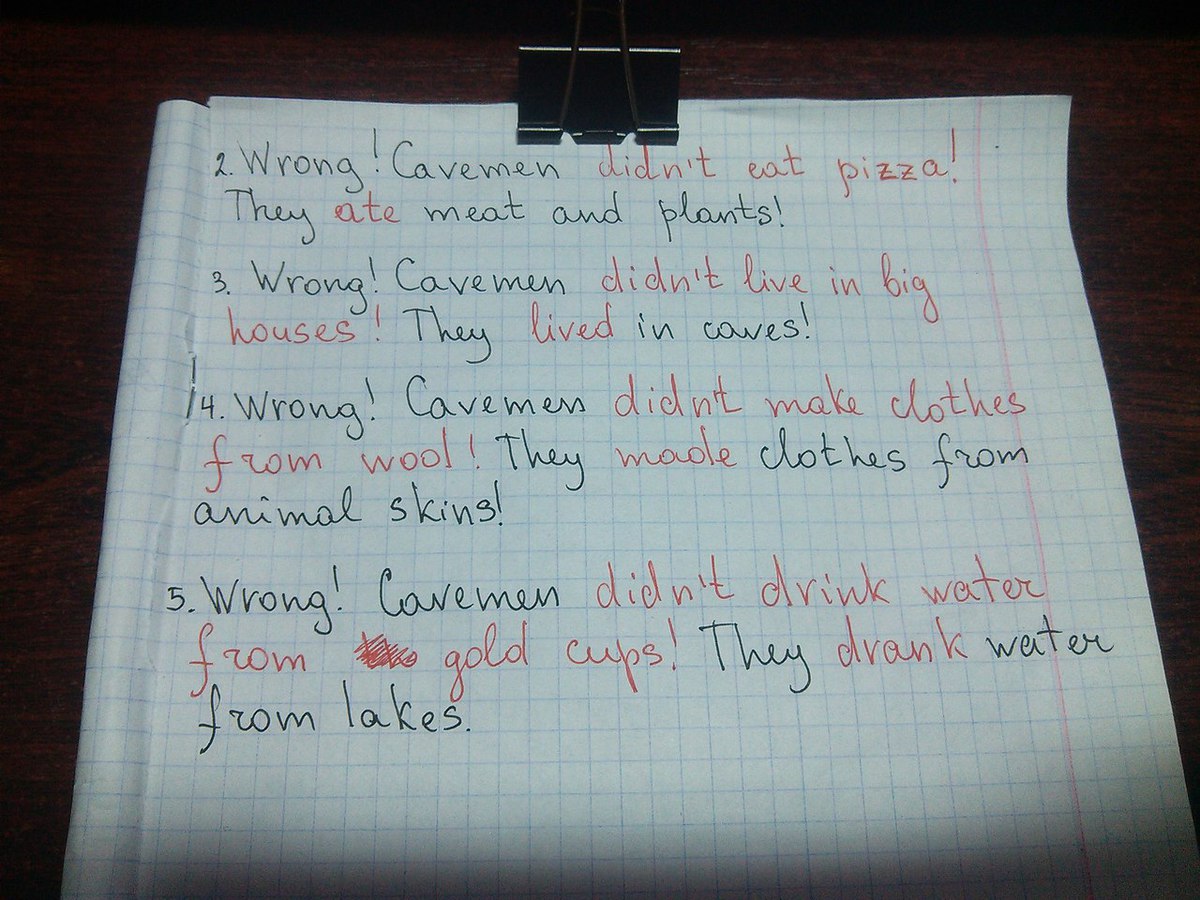 2. Wrong! Cavemen didn't eat pizza!
They ate meat and plants!
3. Wrong! Cavemen didn't live in big
houses! They lived in caves!
4. Wrong! Cavemen didn't make clothes
from wool! They made clothes from
animal skins!
5. Wrong! Cavemen didn't drink water
from gold cups! They drank water
from lakes.